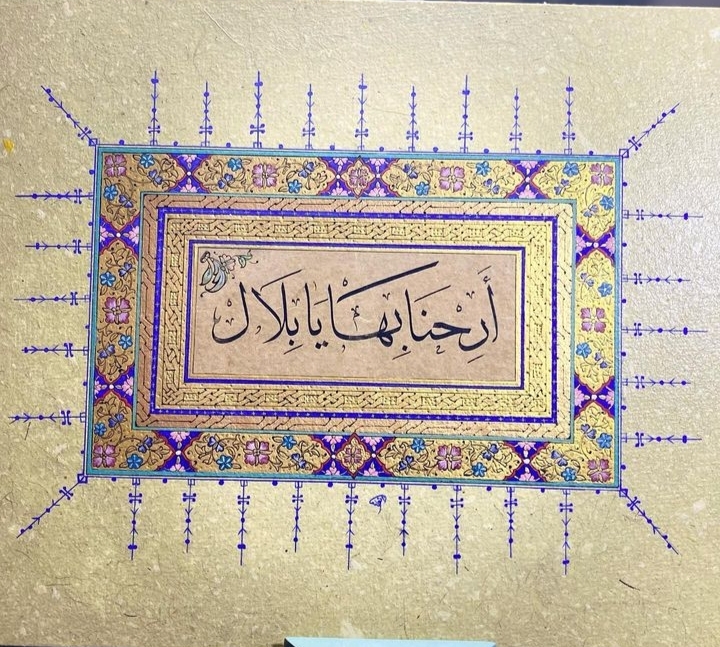 أَرِحْنَا بِهَا يَا بِلَالُ